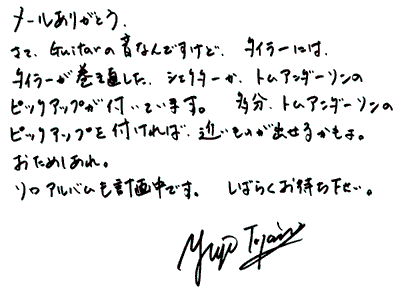 メールありがとう.
さて、Guitarの音なんですけど、タイラーには、
タイラーが巻き直した、シェクターか、トムアンダーソンの
ピックアップが付いています。 多分、トムアンダーソンの
ピックアップを付ければ、近いものが出せるかもよ。
おためしあれ。
ソロアルバムも計画中です。 しばらくお待ち下せい。